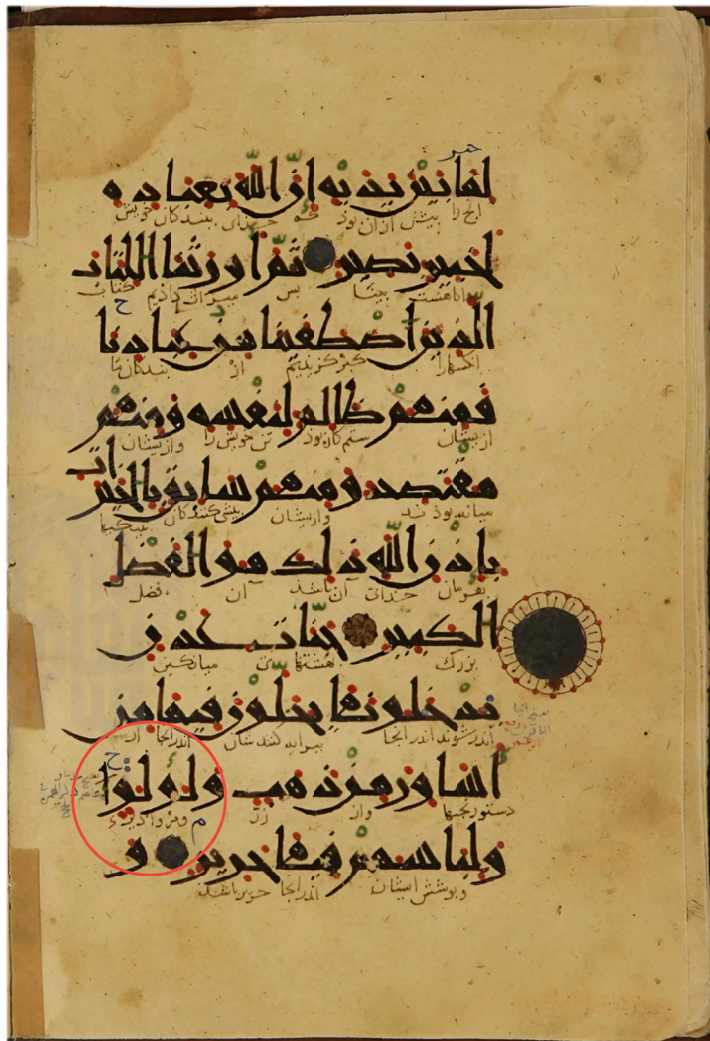 لما بين يديه ان الله بعباده
انچ را پیش ازان بوذ خدای ببندکان خویش
لخبير بصير ثم اورثنا الكتاب
داناهست بینا پس میراث داذیم کتاب
الذين اصطفينا من عبادنا
انکسهارا کبرکزیدیم از بندکان ما
فمنهم ظالم لنفسه ومنهم
ازیشان ستم کان بوذ تن خویش را وازیشان
مقتصد ومنهم سابق بالخيرات
میانه بوذند وازیشان پیشی کنندکان بنیکیها
باذن الله ذلك هو الفضل
بفرمان خدای آن باشذ آن فضل
الكبير جنات عدن
بزرک بهشتها میانکین
يدخلونها يحلون فيها من
اندر شوند اندرانجا پیرایه کنندشان اندرانجا از
اساور من ذهب ولولوا
دستورنجها واز زر ومرواریذ
ولباسهم فيها حرير و
وپوشش ایشان اندرانجا حریر باشذ